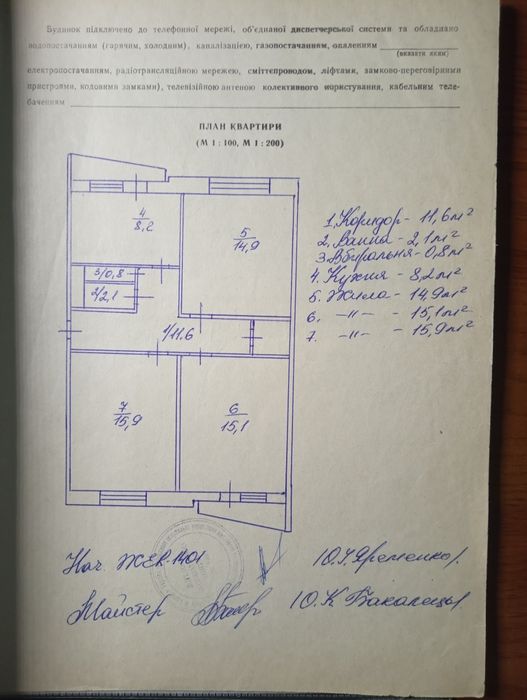 Будинок підключено до телефонної мережі, об'єднаної диспетчерської системи та обладнано
водопостачанням (гарячим, холодним), каналізацією, газопостачанням, опаленням
(вказати яким)
електропостачанням, радіотрансляційною мережею, сміттєпроводом, ліфтами, замково-переговірними
пристроями, кодовими замками), телевізійною антеною колективного користування, кабельним теле-
баченням
ПЛАН КВАРТИРИ
(М 1 : 100, М 1 : 200)
4/8,2
5/14,9
3/0,8
2/2,1
1/11.6
7/15,9
6/15,1
1. Коридор - 11,6 м²
2. Ванна - 2,1 м²
3. Вбиральня - 0,8 м²
4. Кухня - 8,2 м²
5. Жила - 14,9 м²
6. -〃- - 15,1 м²
7. -〃- - 15,9 м²
Нач. ЖЕК 1401
Ю. Яременко
Майстер
Ю. К